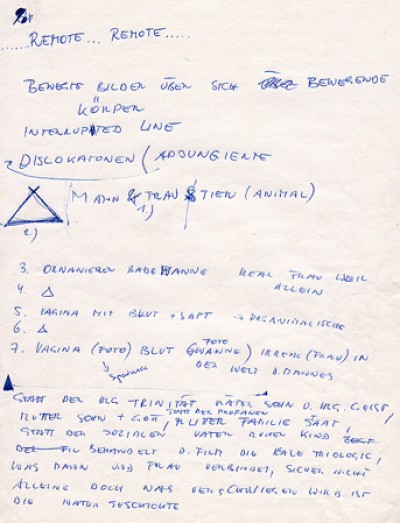 ..... REMOTE... REMOTE.....
BEWEGTE BILDER ÜBER SICH BEWEGENDE
KÖRPER
INTERRUPTED LINE
DISLOKATIONEN / ADJUNGIERTE
MANN & FRAU & TIER (ANIMAL)
1.)
2.)
3. ORNANIEREN BADEWANNE REAL FRAU WEIL
4. △ ALLEIN
5. VAGINA MIT BLUT + SAFT →
6. △
7. VAGINA (FOTO) BLUT (WANNE) IRREAL (FRAU) IN
FOTO
DER WELT D. MANNES
STATT DER TRINITÄT VATER SOHN U. HLG. GEIST,
MUTTER SOHN + GOTT, STATT DER PROFANEN MUTTER FAMILIE STAAT,
STATT DER SOZIALEN VATER MUTTER KIND
BEHANDELT D. FILM DIE TRIOLOGIE,
WAS MANN UND FRAU VERBINDET, SICHER NICHT
ALLEINE DOCH WAS VERSCHWIEGEN WIRD IST
DIE NATUR GESCHICHTE